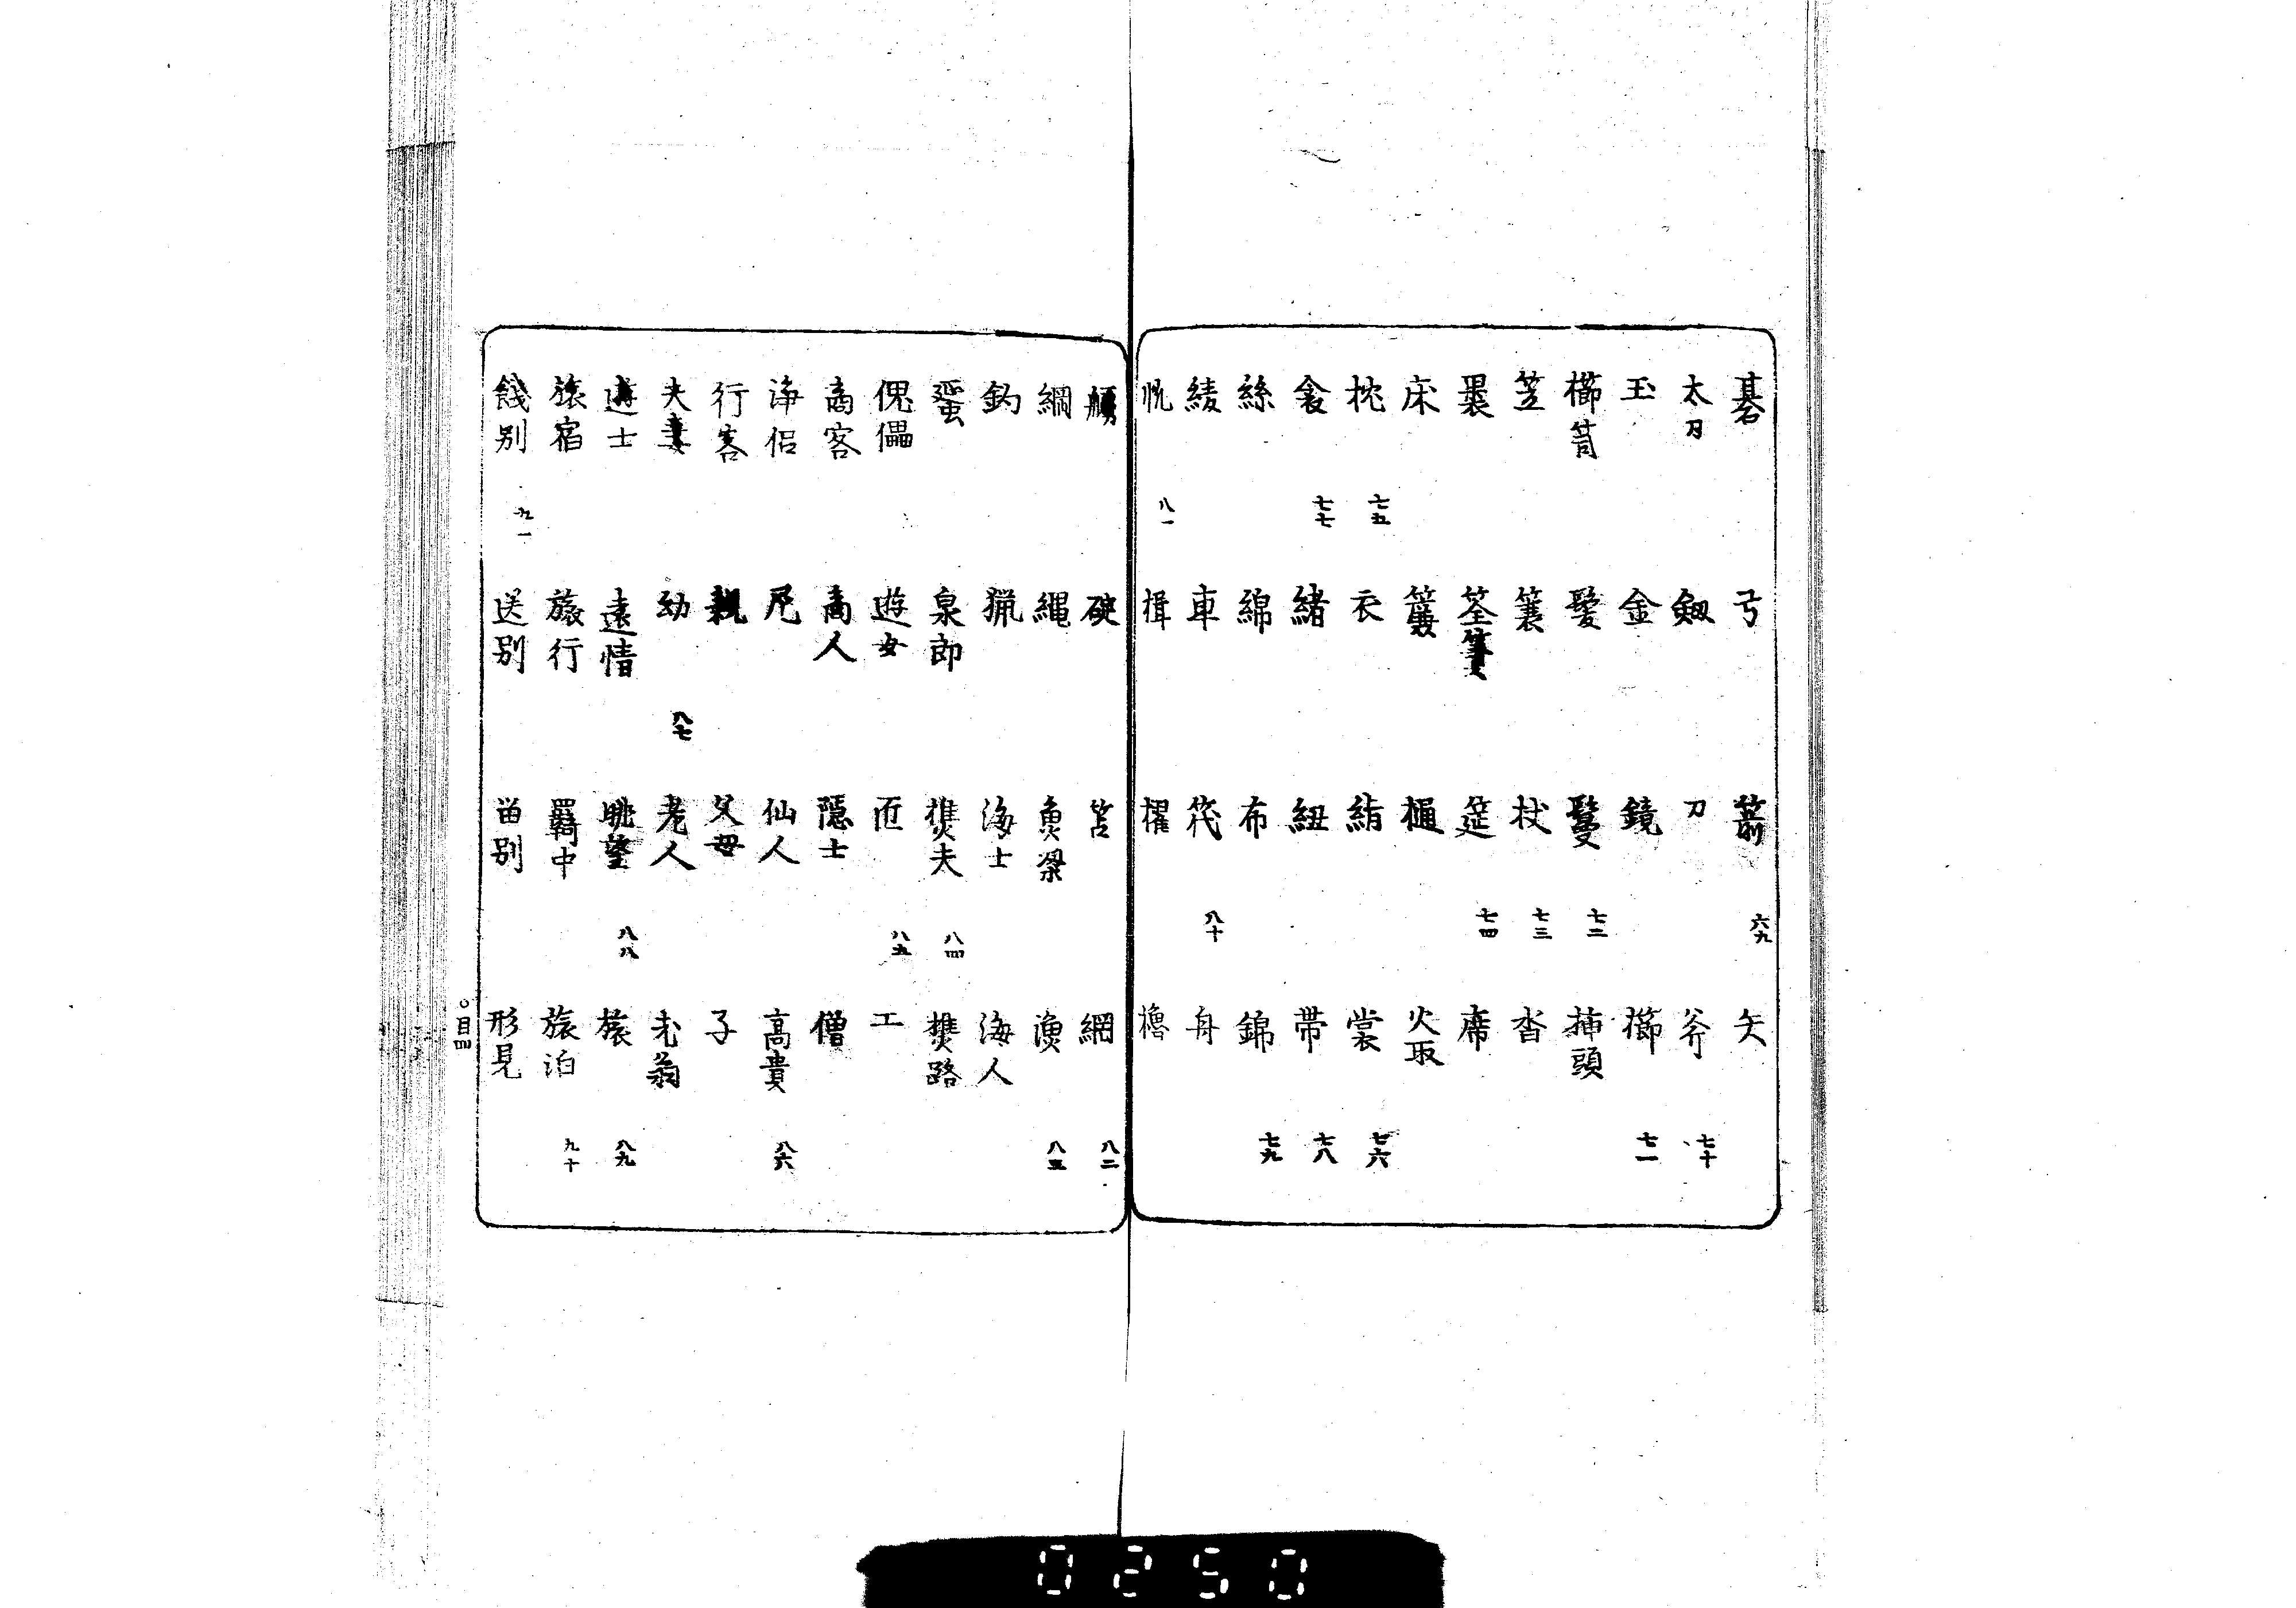 碁 弓 箭 六九 矢
太刀 劔 刀 斧 七十
玉 金 鏡 櫛 七一
櫛笥 髪 鬘 七二 挿頭
笠 簑 杖 七三 沓
筵 七四 席
床 樋 火取
枕 七五 衣 裳 七六
衾 七七 緒 紐 帯 七八
絲 綿 布 錦 七九
綾 車 筏 八十 舟
八一 楫 櫂 櫓
筌 網 八二
綱 縄 魚梁 漁 八三
釣 猟 海士 海人
蜑 泉郎 樵夫 八四 樵路
傀儡 遊女 匠 八五 工
商客 商人 隠士 僧
浄侶 尼 仙人 高貴 八六
行客 親 父母 子
夫妻 幼 八七 老人 老翁
遊士 遠情 眺望 八八 旅 八九
旅宿 旅行 羇中 旅泊 九十
餞別 九一 送別 留別 形見
○目四
0250